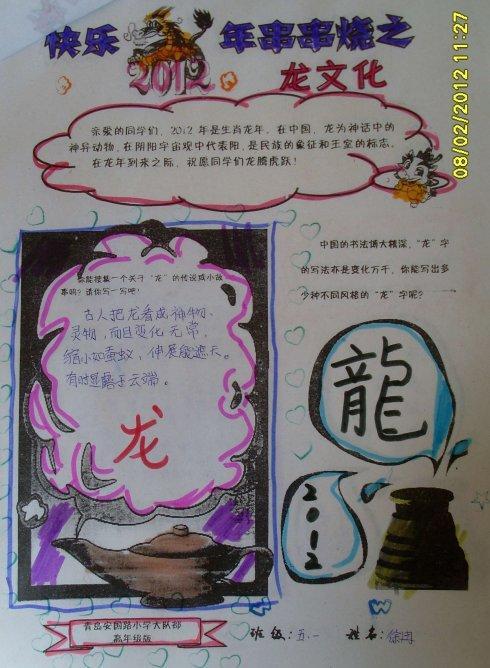 快乐 年串串烧之
2012
龙文化
亲爱的同学们，2012 年是生肖龙年，在中国，龙为神话中的
神异动物，在阴阳宇宙观中代表阳，是民族的象征和王室的标志。
在龙年到来之际，祝愿同学们龙腾虎跃！
你能搜集一个关于“龙”的传说或小故
事吗？请你写一写吧！
古人把龙看成神物、
灵物，而且变化无常，
缩小如蚕蚁，伸展能遮天。
有时显露于云端。
龙
中国的书法博大精深，“龙”字
的写法亦是变化万千，你能写出多
少种不同风格的“龙”字呢？
龍
2012
青岛安国路小学大队部
高年级版
班级：五.一 姓名：徐冉
08/02/2012 11:27